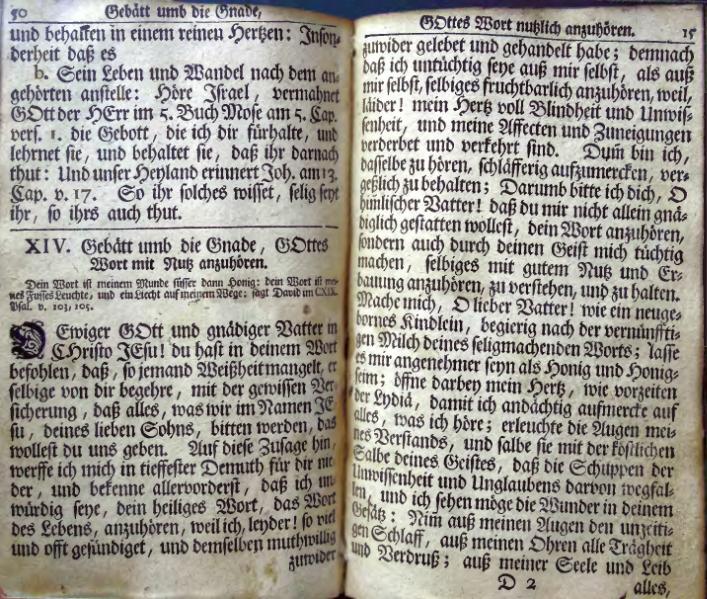 50 Gebätt umb die Gnade,
und behalten in einem reinen Hertzen: Inson-
derheit daß es
b. Sein Leben und Wandel nach dem an-
gehörten anstelle: Höre Israel, vermahnet
GOtt der HErr im 5. Buch Mose am 5. Cap.
vers. 1. die Gebott, die ich dir fürhalte, und
lehrnet sie, und behaltet sie, daß ihr darnach
thut: Und unser Heyland erinnert Joh. am 13.
Cap. v. 17. So ihr solches wisset, selig seyt
ihr, so ihrs auch thut.
XIV. Gebätt umb die Gnade, GOttes
Wort mit Nutz anzuhören.
Dein Wort ist meinem Munde süsser dann Honig: dein Wort ist mei-
nes Fusses Leuchte, und ein Liecht auf meinem Wege: sagt David im CXIX.
Psal. v. 103, 105.
O Ewiger GOtt und gnädiger Vatter in
CHristo JEsu! du hast in deinem Wort
befohlen, daß, so jemand Weißheit mangelt, er
selbige von dir begehre, mit der gewissen Ver-
sicherung, daß alles, was wir im Namen JE-
su, deines lieben Sohns, bitten werden, das
wollest du uns geben. Auf diese Zusage hin,
werffe ich mich in tieffester Demuth für dir nie-
der, und bekenne allervorderst, daß ich un-
würdig seye, dein heiliges Wort, das Wort
des Lebens, anzuhören, weil ich, leyder! so viel
und offt gesündiget, und demselben muthwillig
zuwider
GOttes Wort nutzlich anzuhören. 15
zuwider gelebet und gehandelt habe; demnach
daß ich untüchtig seye auß mir selbst, als auß
mir selbst, selbiges fruchtbarlich anzuhören, weil,
läider! mein Hertz voll Blindheit und Unwis-
senheit, und meine Affecten und Zuneigungen
verderbet und verkehrt sind. Dum̃ bin ich,
dasselbe zu hören, schläfferig aufzumercken, ver-
geßlich zu behalten; Darumb bitte ich dich, O
him̃lischer Vatter! daß du mir nicht allein gnä-
diglich gestatten wollest, dein Wort anzuhören,
sondern auch durch deinen Geist mich tüchtig
machen, selbiges mit gutem Nutz und Er-
bauung anzuhören, zu verstehen, und zu halten.
Mache mich, O lieber Vatter! wie ein neuge-
bornes Kindlein, begierig nach der vernünffti-
gen Milch deines seligmachenden Worts; lasse
es mir angenehmer seyn als Honig und Honig-
seim; öffne darbey mein Hertz, wie vorzeiten
der Lydiä, damit ich andächtig aufmercke auf
alles, was ich höre; erleuchte die Augen mei-
nes Verstands, und salbe sie mit der köstlichen
Salbe deines Geistes, daß die Schuppen der
Unwissenheit und Unglaubens darvon wegfal-
len, und ich sehen möge die Wunder in deinem
Gesätz: Nim̃ auß meinen Augen den unzeiti-
gen Schlaff, auß meinen Ohren alle Trägheit
und Verdruß; auß meiner Seele und Leib
D 2 alles,